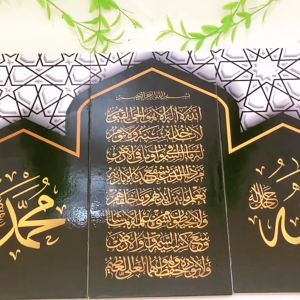 بسم الله الرحمن الرحيم
الله لا إله إلا هو الحي القيوم
لا تأخذه سنة ولا نوم
له ما في السموات وما في الأرض
من ذا الذي يشفع عنده إلا بإذنه
يعلم ما بين أيديهم وما خلفهم
ولا يحيطون بشيء من علمه إلا بما شاء
وسع كرسيه السموات والأرض
ولا يئوده حفظهما وهو العلي العظيم
الله
جل جلاله
محمد